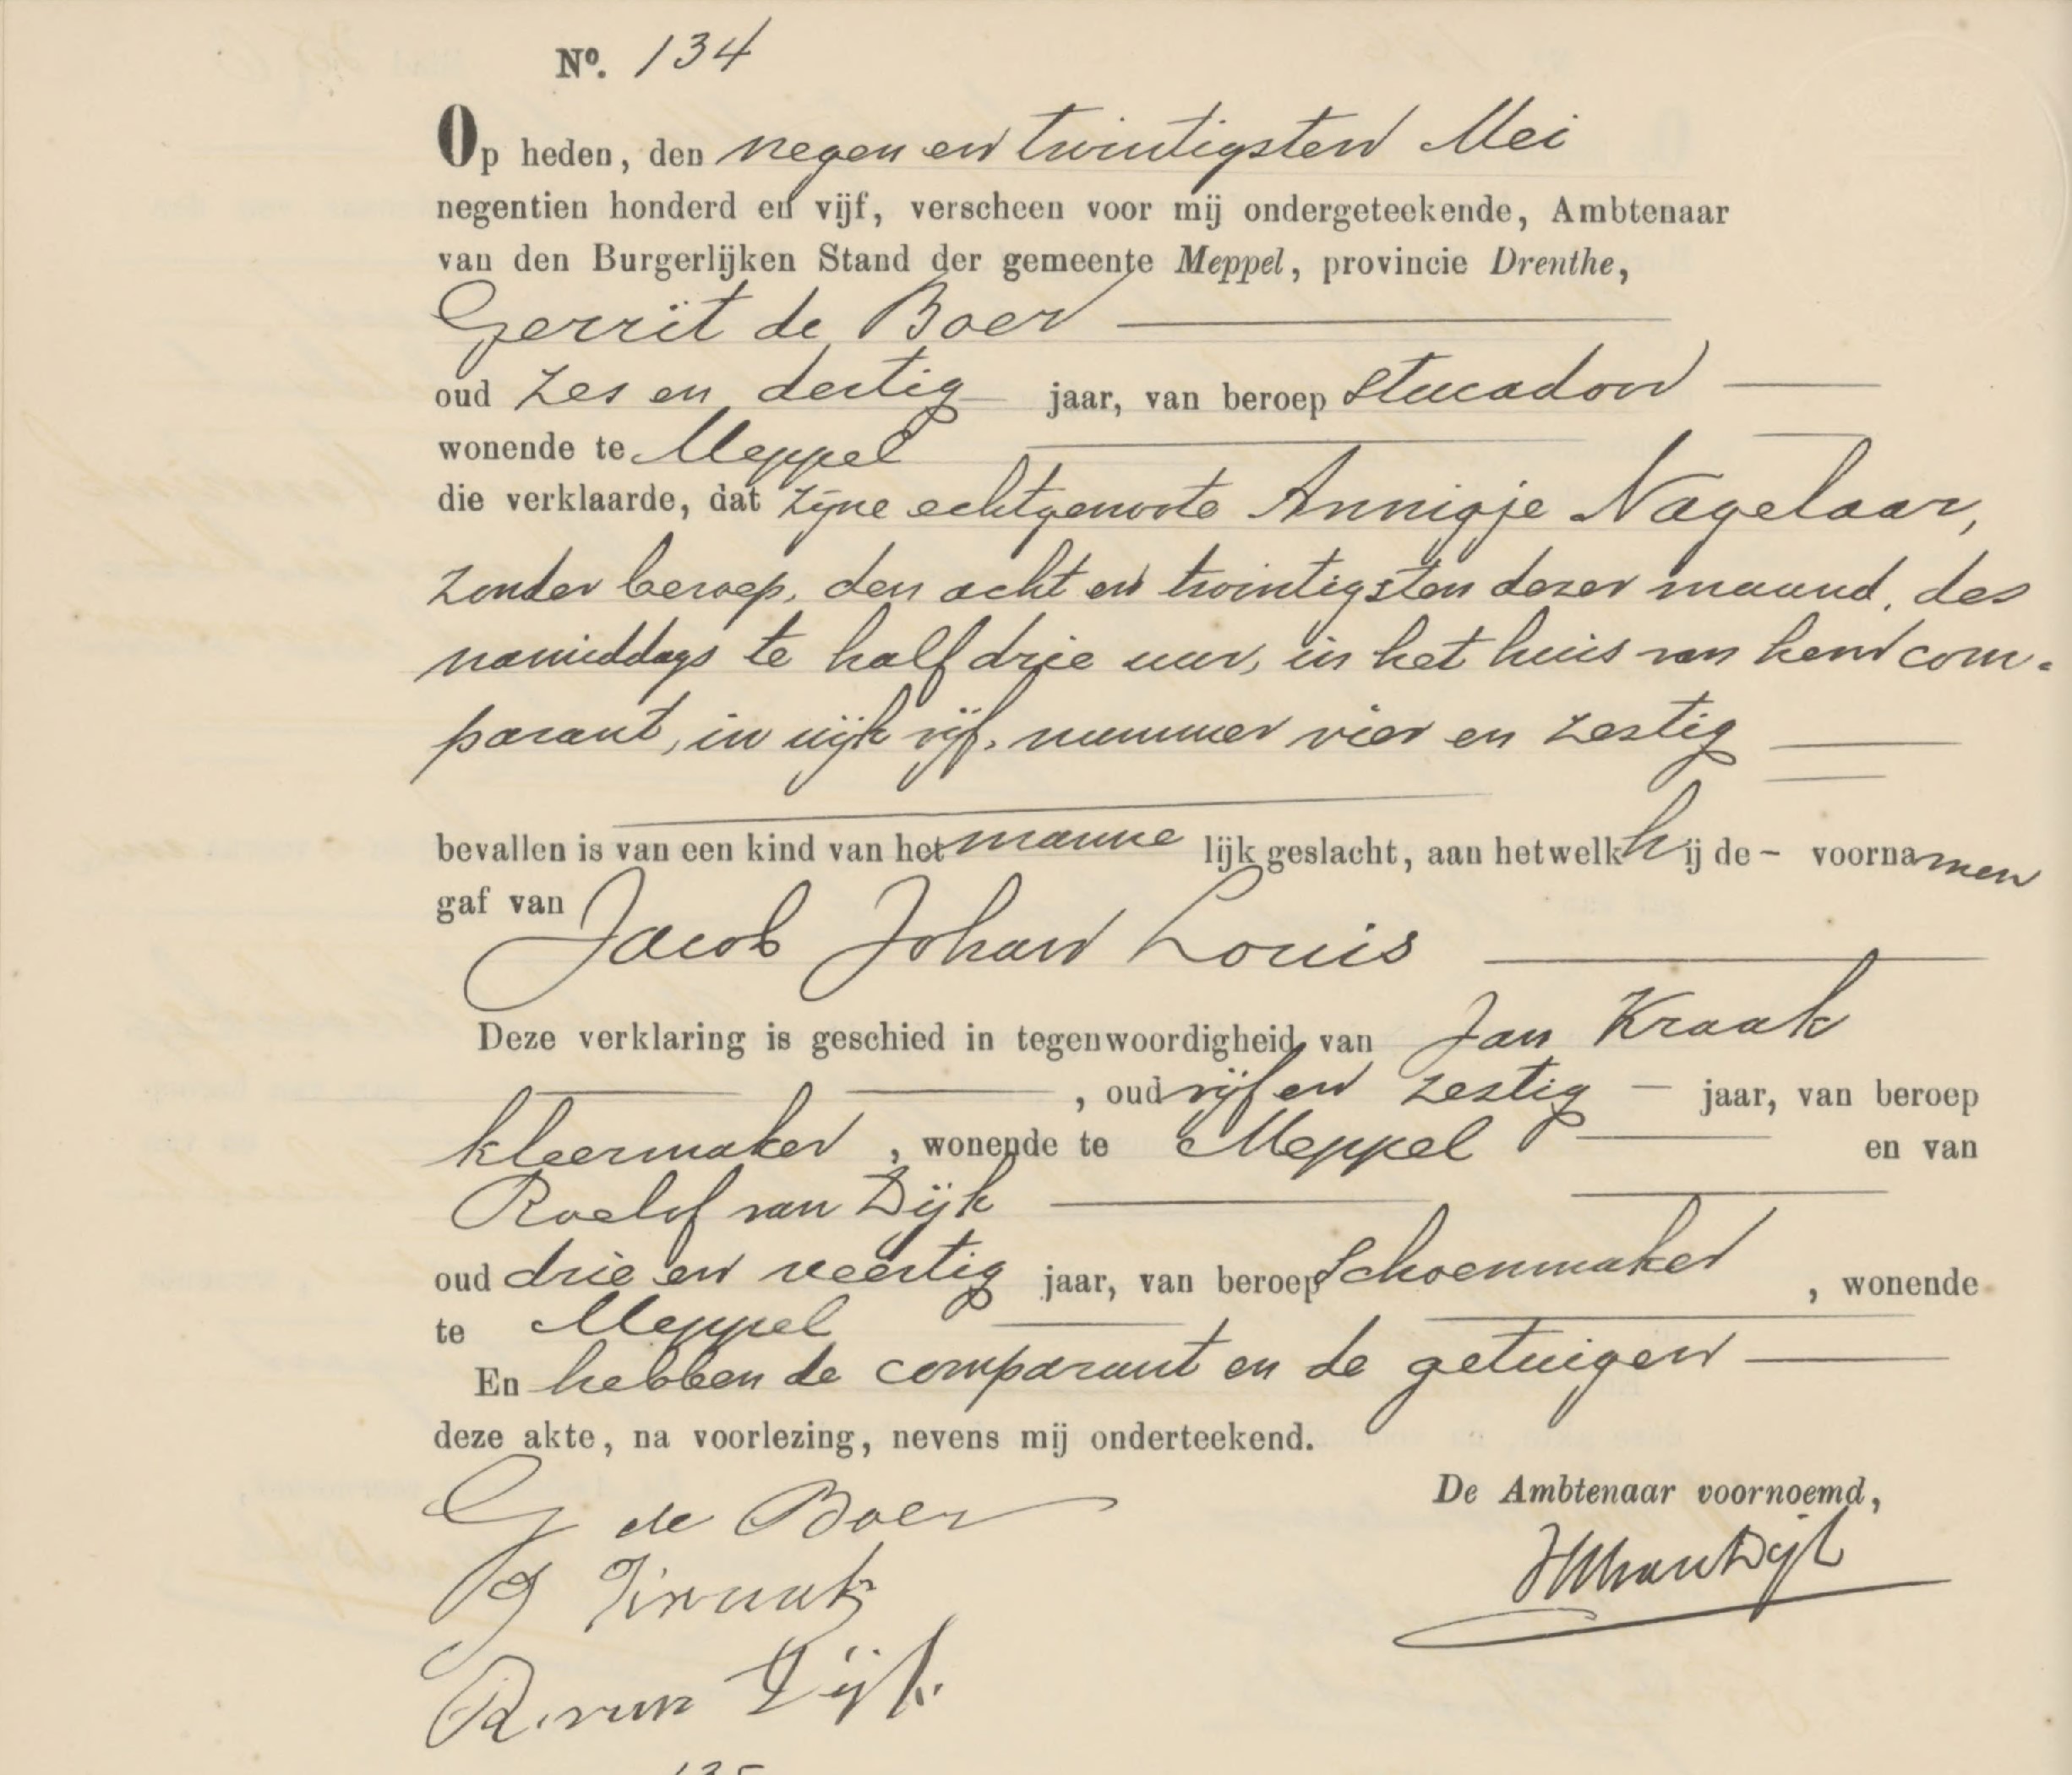 No. 134
Op heden, den negen en twintigsten Mei
negentien honderd en vijf, verscheen voor mij ondergeteekende, Ambtenaar
van den Burgerlijken Stand der gemeente Meppel, provincie Drenthe,
Gerrit de Boer
oud zes en dertig jaar, van beroep stucadoor
wonende te Meppel
die verklaarde, dat zijne echtgenoote Annigje Nagelaar,
zonder beroep, den acht en twintigsten dezer maand, des
namiddags te half drie uur, in het huis van hem com-
parant, in wijk vijf, nummer vier en zestig
bevallen is van een kind van het manne lijk geslacht, aan hetwelk hij de - voornamen
gaf van Jacob Johan Louis
Deze verklaring is geschied in tegenwoordigheid van Jan Kraak
, oud vijf en zestig - jaar, van beroep
kleermaker, wonende te Meppel en van
Roelof van Dijk
oud drie en veertig jaar, van beroep schoenmaker, wonende
te Meppel
En hebben de comparant en de getuigen
deze akte, na voorlezing, nevens mij onderteekend.
De Ambtenaar voornoemd,
G de Boer
J Kraak
R. van Dijk.